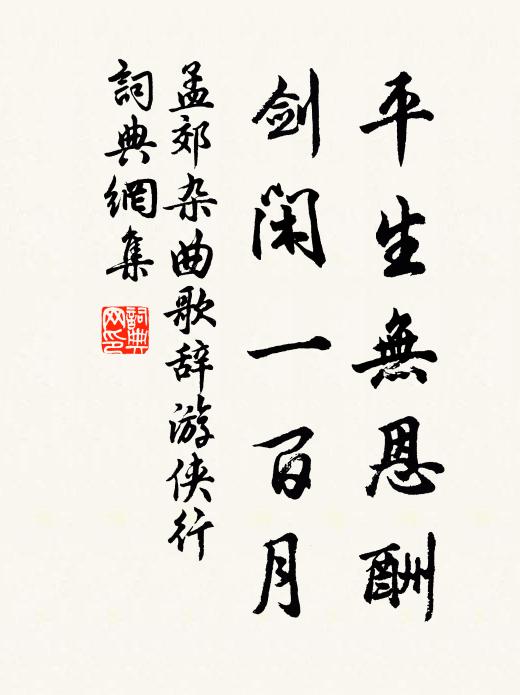 平生無恩酬
剑闲一百月
孟郊杂曲歌辞游侠行
詞典網集
詞典网印